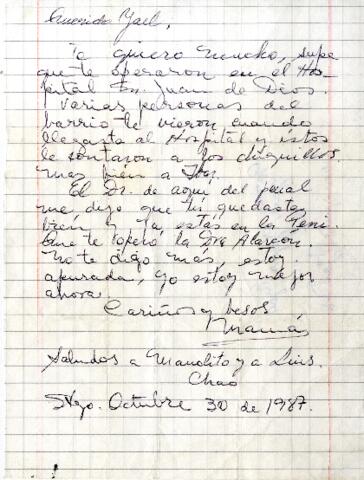 Querido Yael,
Te quiero mucho, supe
que te operaron en el Hos-
pital Sn. Juan de Dios.
Varias personas del
barrio te vieron cuando
llegaste al Hospital y éstos
le contaron a los
mas bien a
El Dr. de aquí del penal
me dijo que tú quedaste
bien y ya estás en la Peni.
Que te operó la Dra Alarcón.
No te digo más, estoy
apurada, yo estoy mejor
ahora
Cariños y besos
Mamá
Saludos a Manolito y a Luis.
Chao
Stgo. Octubre 30 de 1987.